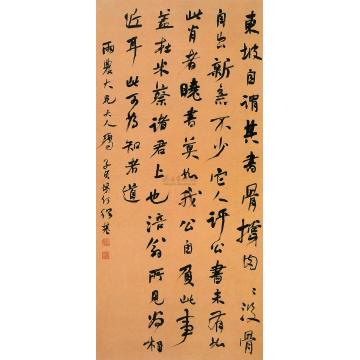 東坡自謂其書骨撐肉〻沒骨
自出新意不少它人評公書未有如
此肖者曉書莫如我公自負此事
蓋在米蔡諸君上也涪翁所見為相
近耳此可為知者道
雨農大兄大人屬 子貞弟何紹基